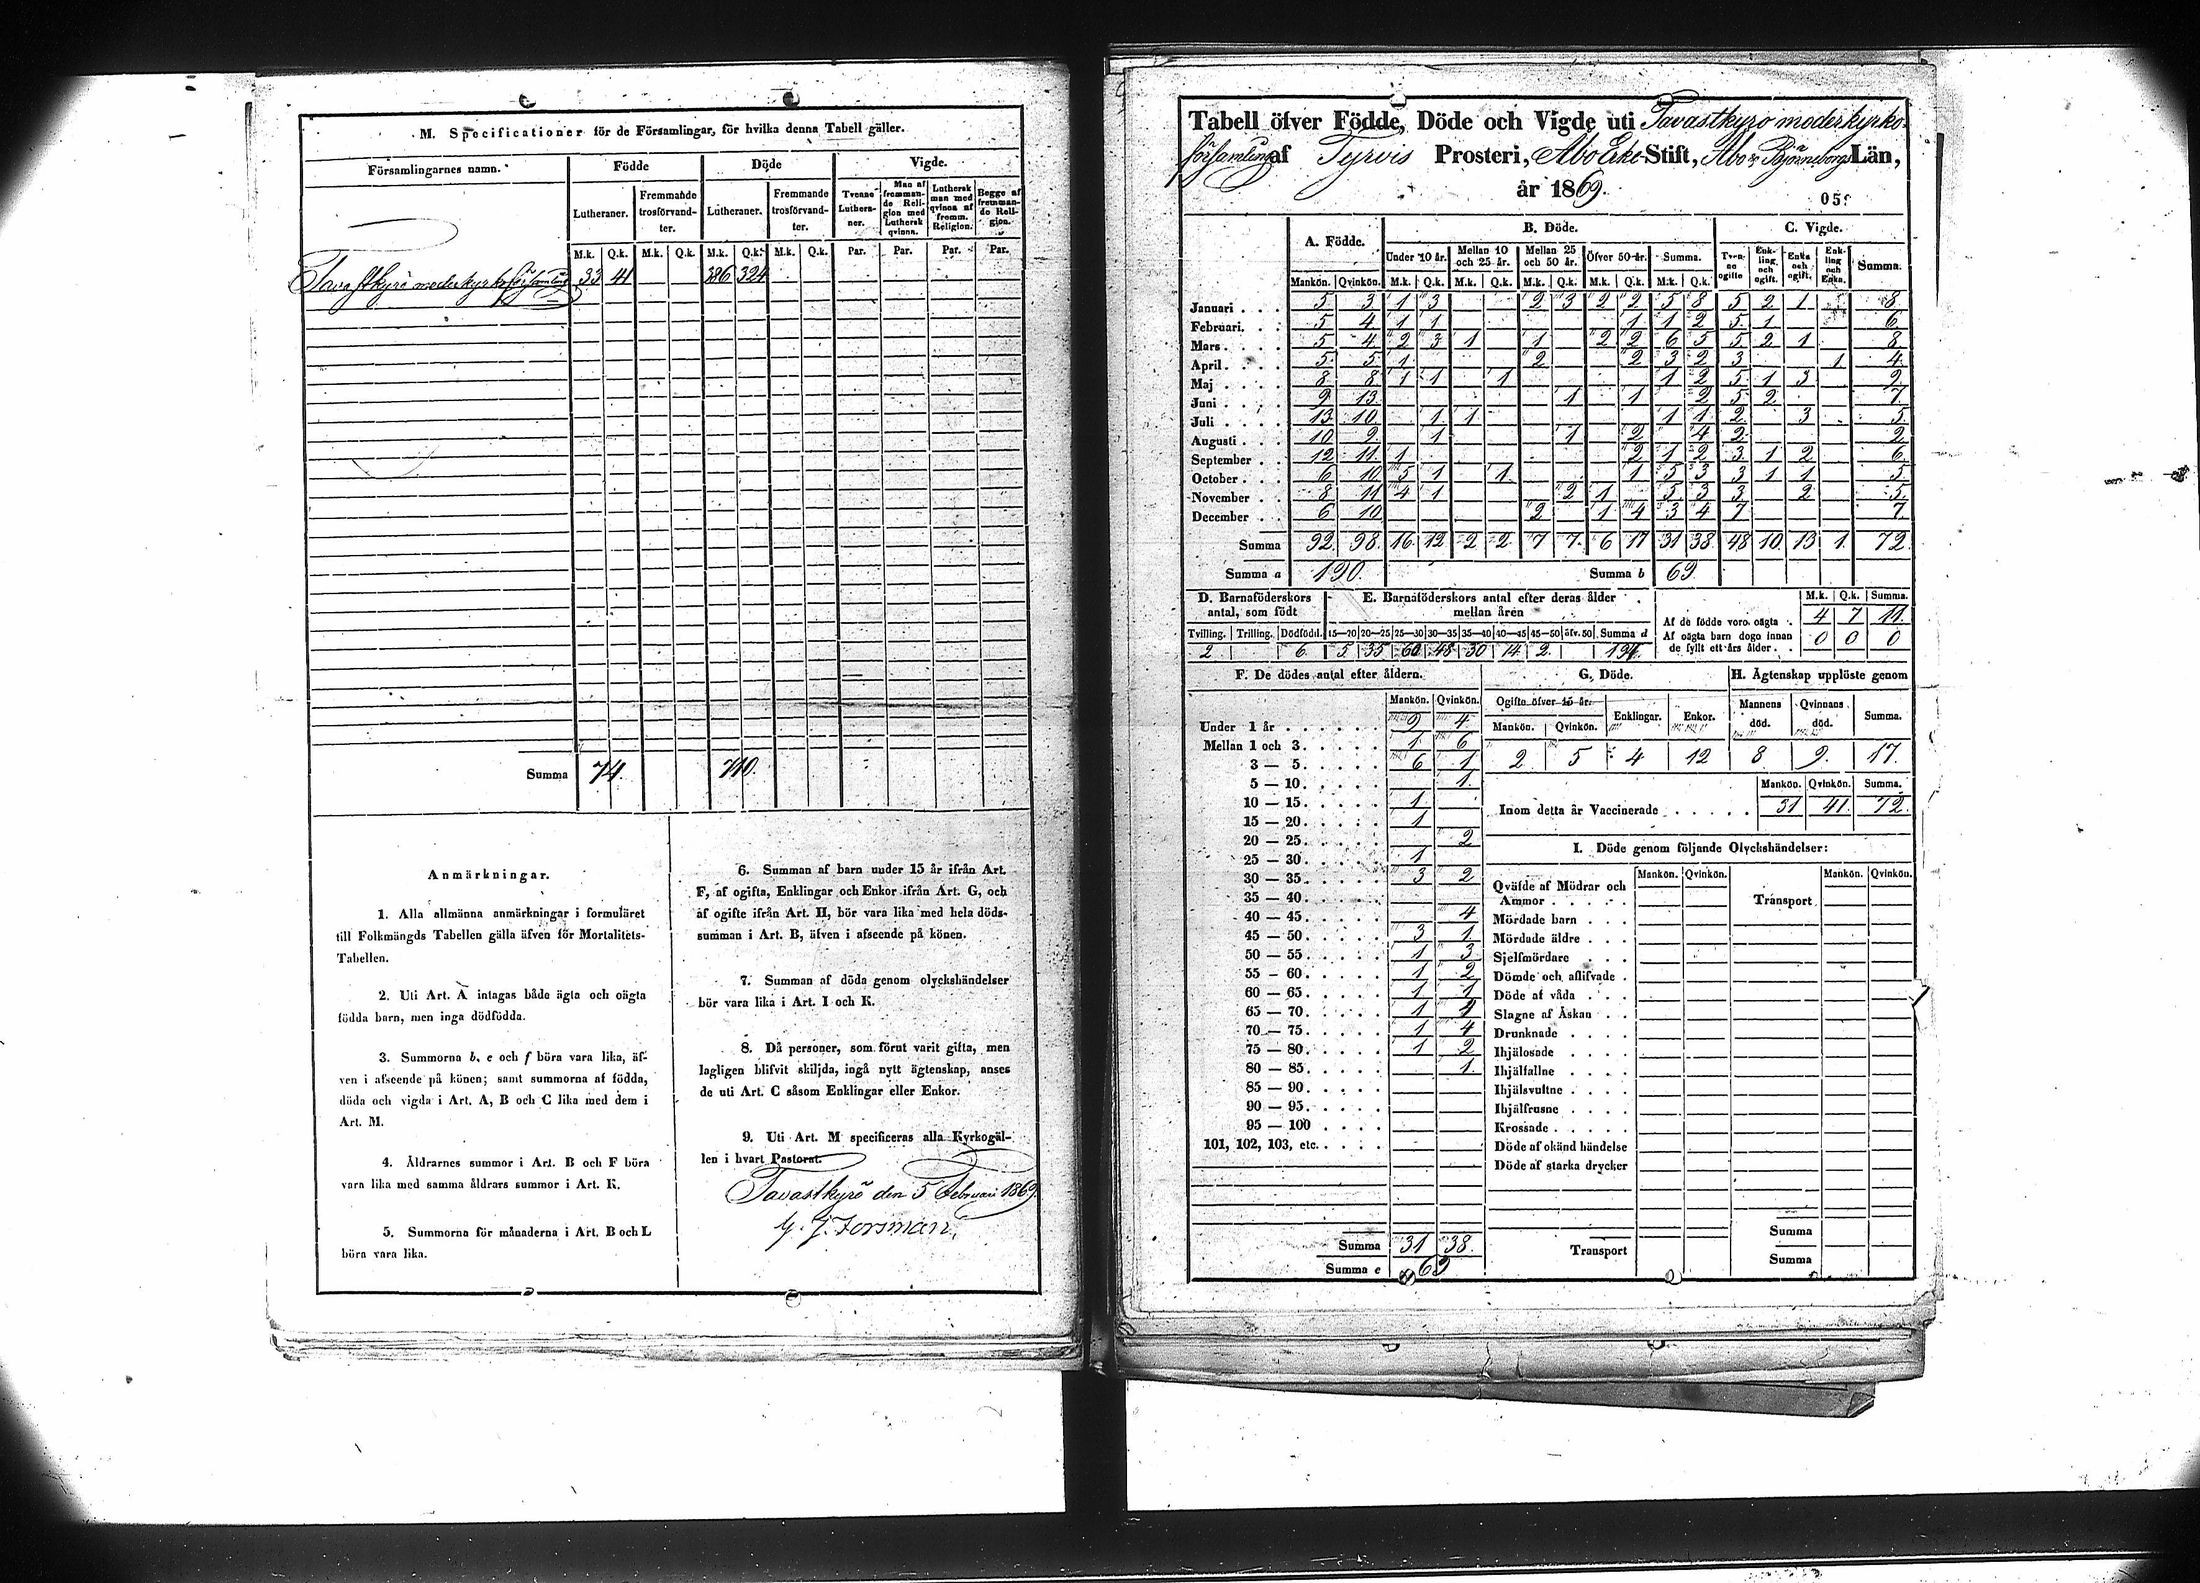 M. Specificationer för de Församlingar, för hvilka denna Tabell gäller.
Församlingarnes namn. Födde Döde Vigde.
Lutheraner. Fremmande trosförvandter. Lutheraner. Fremmande trosförvandter. Tvenne Lutheraner. Man af fremmande Religion med Luthersk qvinna. Luthersk man med qvinna af fremm. Religion. Begge af fremmande Religion.
M.k. Q.k. M.k. Q.k. M.k. Q.k. M.k. Q.k. Par. Par. Par. Par.
Tavastkyrö moderkyrkoförsamling 33 41 386 324
Summa 74. 710.
Anmärkningar.
1. Alla allmänna anmärkningar i formuläret
till Folkmängds Tabellen gälla äfven för Mortalitets-
Tabellen.
2. Uti Art. A intagas både ägta och oägta
födda barn, men inga dödfödda.
3. Summorna b, e och f böra vara lika, äf-
ven i afseende på könen; samt summorna af födda,
döda och vigda i Art. A, B och C lika med dem i
Art. M.
4. Åldrarnes summor i Art. B och F böra
vara lika med samma åldrars summor i Art. K.
5. Summorna för månaderna i Art. B och L
böra vara lika.
6. Summan af barn under 15 år ifrån Art.
F, af ogifta, Enklingar och Enkor ifrån Art. G, och
af ogifte ifrån Art. H, bör vara lika med hela döds-
summan i Art. B, äfven i afseende på könen.
7. Summan af döda genom olyckshändelser
bör vara lika i Art. I och K.
8. Då personer, som förut varit gifta, men
lagligen blifvit skiljda, ingå nytt ägtenskap, anses
de uti Art. C såsom Enklingar eller Enkor.
9. Uti Art. M specificeras alla Kyrkogäl-
len i hvart Pastorat.
Tavastkyrö den 5 Februari 1869.
G. J. Forsman.
Tabell öfver Födde, Döde och Vigde uti Tavastkyrö moderkyrko-
församling af Tyrvis Prosteri, Åbo Erke-Stift, Åbo o Björneborgs Län,
år 1869.
05
A. Födde. B. Döde. C. Vigde.
Under 10 år. Mellan 10 och 25 år. Mellan 25 och 50 år. Öfver 50 år. Summa. Tvenne ogifte Enkling och ogift. Enka och ogift. Enkling och Enka. Summa.
Mankön. Qvinkön. M.k. Q.k. M.k. Q.k. M.k. Q.k. M.k. Q.k. M.k. Q.k.
Januari 5 3 1 3 2 3 2 2 5 8 5 2 1 8
Februari 5 4 1 1 1 1 2 5 1 6
Mars 5 4 2 3 1 1 2 2 6 5 5 2 1 8
April 5 5 1 2 2 3 2 3 1 4
Maj 8 8 1 1 1 1 2 5 1 3 9
Juni 9 13 1 1 2 5 2 7
Juli 13 10 1 1 1 1 2 3 5
Augusti 10 9 1 1 2 4 2 2
September 12 11 1 2 1 2 3 1 2 6
October 6 10 5 1 1 1 5 3 3 1 1 5
November 8 11 4 1 2 1 5 3 3 2 5
December 6 10 2 1 4 3 4 7 7
Summa 92 98 16 12 2 2 7 7 6 17 31 38 48 10 13 1 72
Summa a 190. Summa b 69.
D. Barnaföderskors antal, som födt
E. Barnaföderskors antal efter deras ålder mellan åren
Tvilling. Trilling. Dödfödd. 15—20 20—25 25—30 30—35 35—40 40—45 45—50 öfv. 50 Summa d
2 6 5 35 60 48 30 14 2 194
M.k. Q.k. Summa.
Af de födde voro oägta 4 7 11
Af oägta barn dogo innan de fyllt ett års ålder 0 0 0
F. De dödes antal efter åldern.
Mankön. Qvinkön.
Under 1 år 9 4
Mellan 1 och 3 1 6
3 — 5 6 1
5 — 10 1
10 — 15 1
15 — 20 1
20 — 25 2
25 — 30 1
30 — 35 3 2
35 — 40
40 — 45 4
45 — 50 3 1
50 — 55 1 3
55 — 60 1 2
60 — 65 1 1
65 — 70 1 4
70 — 75 1 4
75 — 80 1 2
80 — 85 1
85 — 90
90 — 95
95 — 100
101, 102, 103, etc.
Summa 31 38
Summa e 69
G. Döde.
Ogifte öfver 15 år. Enklingar. Enkor.
Mankön. Qvinkön.
2 5 4 12
H. Ägtenskap upplöste genom
Mannens död. Qvinnans död. Summa.
8 9 17
Mankön. Qvinkön. Summa.
Inom detta år Vaccinerade 31 41 72
I. Döde genom följande Olyckshändelser:
Mankön. Qvinkön. Mankön. Qvinkön.
Qväfde af Mödrar och Ammor Transport
Mördade barn
Mördade äldre
Sjelfmördare
Dömde och aflifvade
Döde af våda
Slagne af Åskan
Drunknade
Ihjälosade
Ihjälfallne
Ihjälsvultne
Ihjälfrusne
Krossade
Döde af okänd händelse
Döde af starka drycker
Summa
Transport Summa